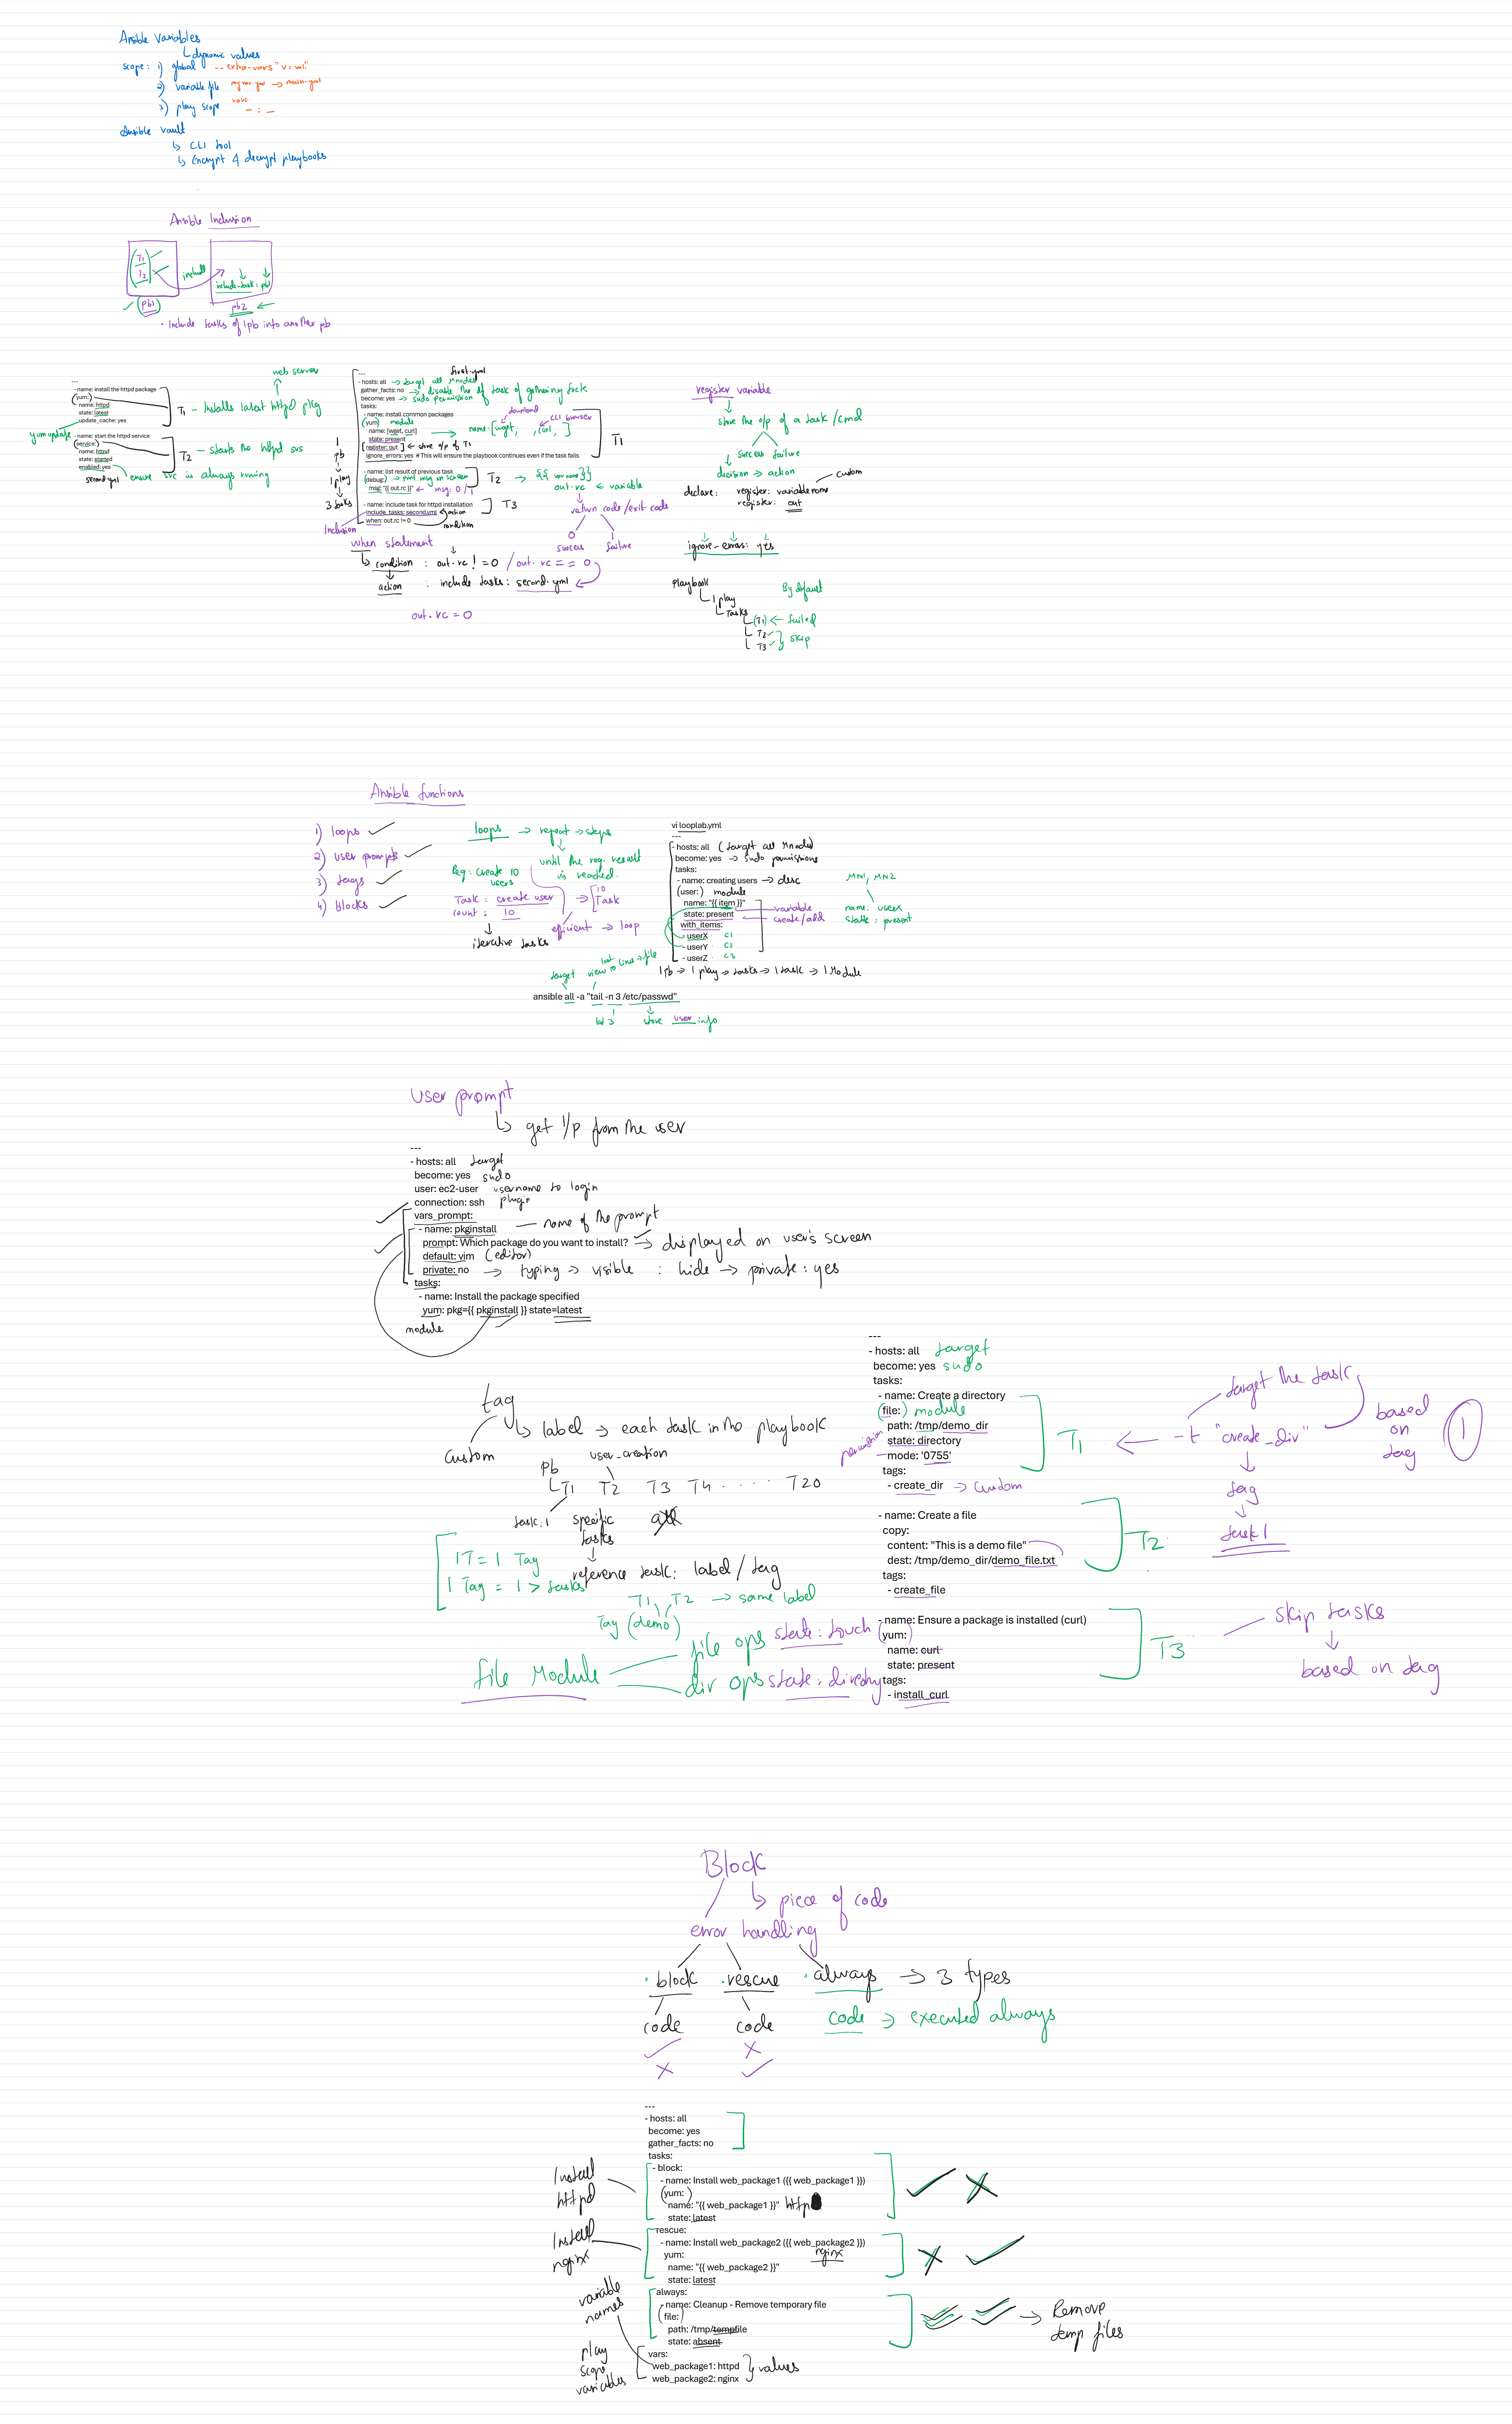 Ansible Variables
↳ dynamic values
scope: 1) global -- extra-vars "v=val"
2) variable file myvar.yml → main.yml
3) play scope vars:
- : -
Ansible vault
↳ CLI tool
↳ Encrypt & decrypt playbooks
Ansible Inclusion
T1
T2
include
include-task: pb1
pb1
pb2
• Include tasks of 1pb into another pb
web server
---
- name: install the httpd package
yum:
name: httpd
state: latest
update_cache: yes
T1 - Installs latest httpd pkg
yum update
- name: start the httpd service
service:
name: httpd
state: started
enabled: yes
T2 - starts the httpd svs
second.yml
ensure svc is always running
first.yml
---
- hosts: all → target all Mnodes
gather_facts: no → disable the df task of gathering facts
become: yes → sudo permission
tasks:
- name: install common packages
yum: module
name: [wget, curl] → name: [wget, , curl, ]
download
CLI browser
state: present
register: out ← store o/p of T1
ignore_errors: yes # This will ensure the playbook continues even if the task fails
T1
1
pb
↓
1 play
↓
3 tasks
- name: list result of previous task
debug: → print msg on screen
msg: "{{ out.rc }}" ← msg: 0 / 1
T2 → {{ var name }}
out.rc ← variable
- name: include task for httpd installation
include_tasks: second.yml ← action
when: out.rc != 0
condition
T3
Inclusion
return code/exit code
0 1
success failure
when statement
↳ condition : out.rc != 0 / out.rc == 0
action : include tasks: second.yml
out.rc = 0
register variable
↓
store the o/p of a task/cmd
success failure
decision → action
custom
declare: register: variablename
register: out
ignore-errors: yes
playbook
By default
1 play
Tasks
(T1) ← failed
T2
T3
skip
Ansible functions
1) loops
2) user prompts
3) tags
4) blocks
loops → repeat → steps
↓
until the req. result
is reached.
Req: Create 10
users
Task: create user
count: 10
→ 10
Task
efficient → loop
↓
iterative tasks
vi looplab.yml
---
- hosts: all (target all Mnodes)
become: yes → sudo permissions
tasks:
- name: creating users → desc
user: module
name: "{{ item }}"
state: present
variable
create/add
with_items:
- userX C1
- userY C2
- userZ C3
MN1, MN2
name: userx
state: present
1pb → 1 play → tasks → 1 task → 1 Module
target view last 10 lines → file
ansible all -a "tail -n 3 /etc/passwd"
lst 3
store user info
User prompt
↳ get I/p from the user
---
- hosts: all target
become: yes sudo
user: ec2-user username to login
connection: ssh plugin
vars_prompt:
- name: pkginstall — name of the prompt
prompt: Which package do you want to install? → displayed on user's screen
default: vim (editor)
private: no → typing → visible : hide → private: yes
tasks:
- name: Install the package specified
yum: pkg={{ pkginstall }} state=latest
module
tag
↳ label → each task in the playbook
custom
user_creation
pb
T1 T2 T3 T4 . . . . T20
task: 1
specific
tasks
all
↓
reference task: label/tag
1T = 1 Tag
1 Tag = 1 > tasks
T1, T2 → same label
Tag (demo)
file Module
file ops state: touch
dir ops state: directory
---
- hosts: all target
become: yes sudo
tasks:
- name: Create a directory
file: module
path: /tmp/demo_dir
state: directory
permission
mode: '0755'
tags:
- create_dir → custom
T1
target the task
← -t "create_dir"
based
on
tag
1
↓
tag
↓
task 1
- name: Create a file
copy:
content: "This is a demo file"
dest: /tmp/demo_dir/demo_file.txt
tags:
- create_file
T2
- name: Ensure a package is installed (curl)
yum:
name: curl
state: present
tags:
- install_curl
T3
skip tasks
↓
based on tag
Block
↳ piece of code
error handling
• block • rescue • always → 3 types
code code code → executed always
✓ X
X ✓
---
- hosts: all
become: yes
gather_facts: no
tasks:
- block:
- name: Install web_package1 ({{ web_package1 }})
yum:
name: "{{ web_package1 }}" http
state: latest
Install
httpd
rescue:
- name: Install web_package2 ({{ web_package2 }})
yum:
nginx
name: "{{ web_package2 }}"
state: latest
Install
nginx
always:
- name: Cleanup - Remove temporary file
file:
path: /tmp/tempfile
state: absent
→ Remove
temp files
variable
names
vars:
web_package1: httpd
web_package2: nginx
values
play
scope
variables